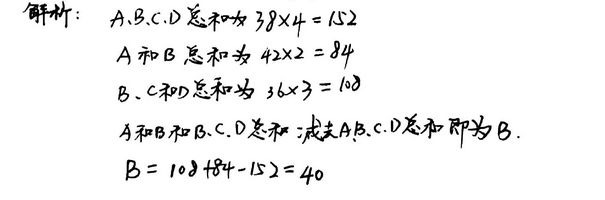 解析: A.B.C.D总和为 38×4=152
A和B总和为 42×2=84
B、C和D总和为 36×3=108
A和B和B.C.D总和减去A.B.C.D总和即为B.
B=108+84-152=40